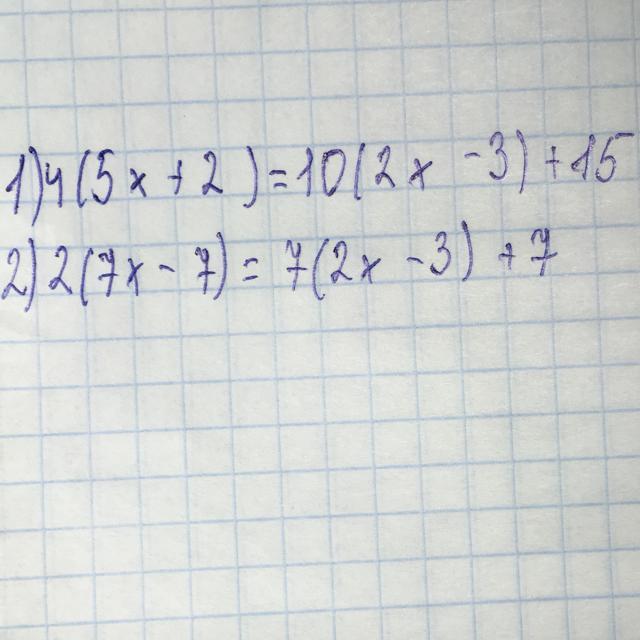 1) 4(5x + 2) = 10(2x - 3) + 15
2) 2(7x - 7) = 7(2x - 3) + 7